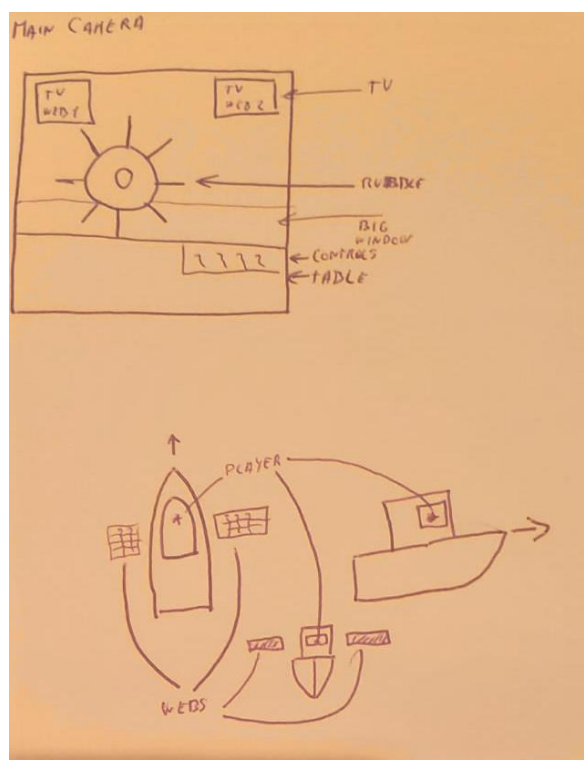 MAIN CAMERA
TV
WEB 1
TV
WEB 2
TV
BIG
WINDOW
CONTROLS
TABLE
PLAYER
WEBS